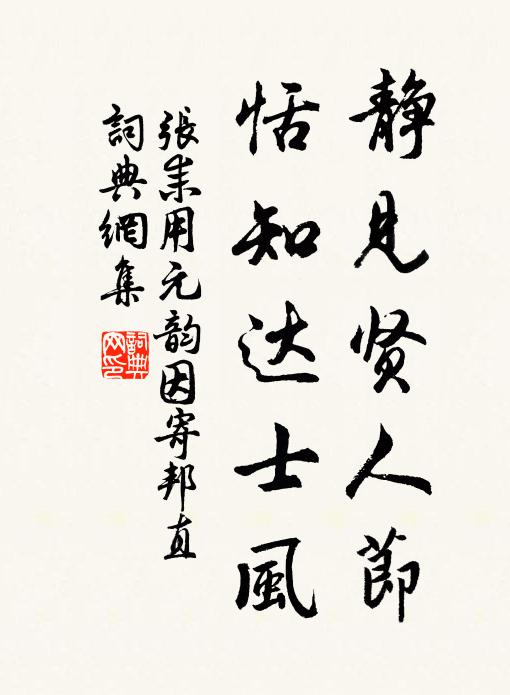 静见贤人節
恬知达士風
張耒用元韵因寄邦直
詞典網集
詞典網印